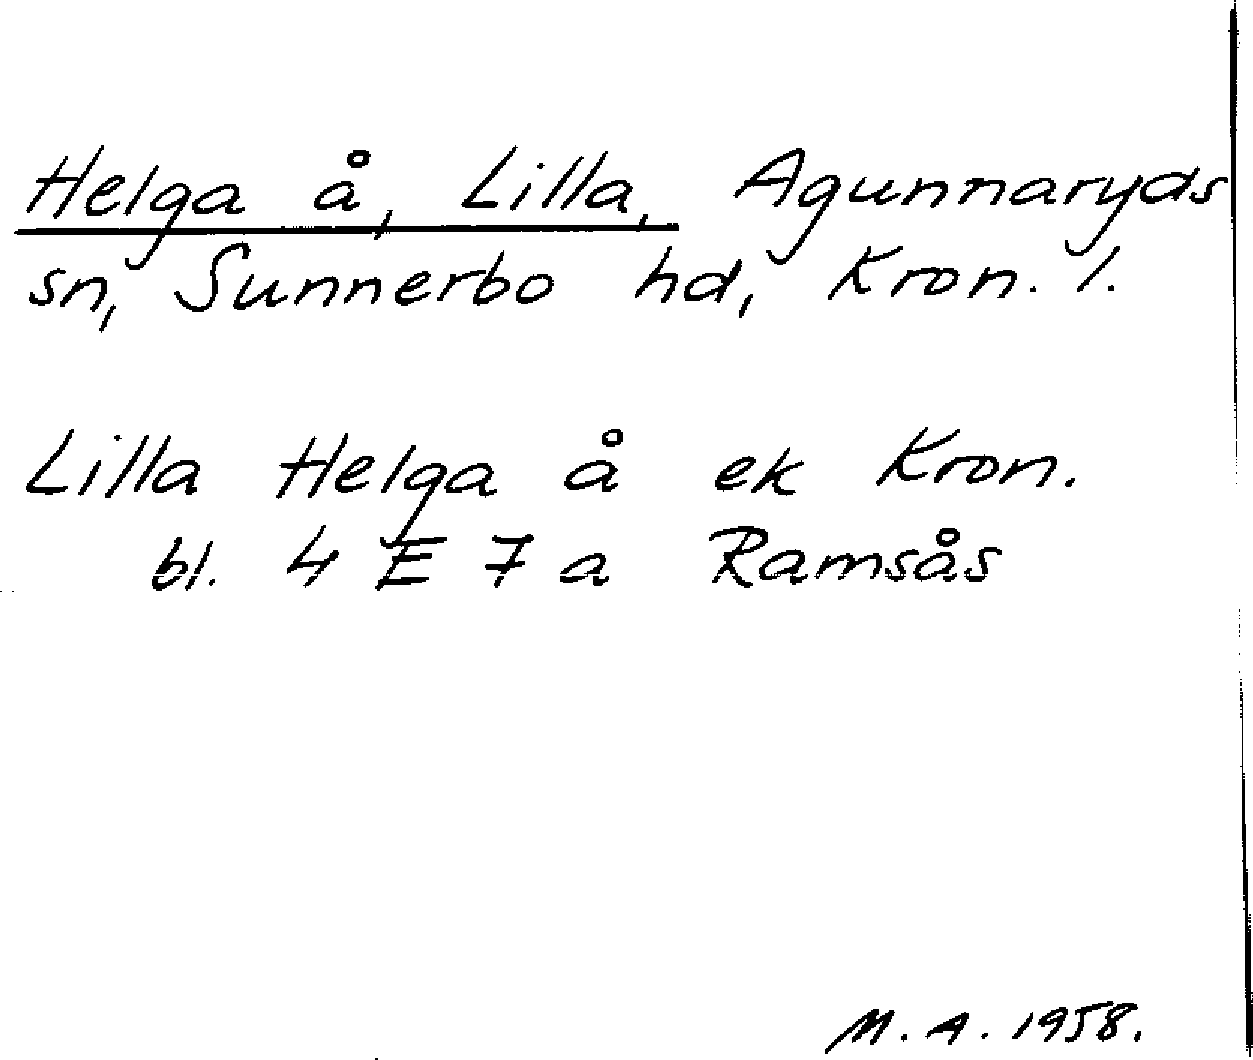 Helga å, Lilla, Agunnaryds
sn, Sunnerbo hd, Kron. l.
Lilla Helga å ek Kron.
bl. 4 E 7 a Ramsås
M. A. 1958.